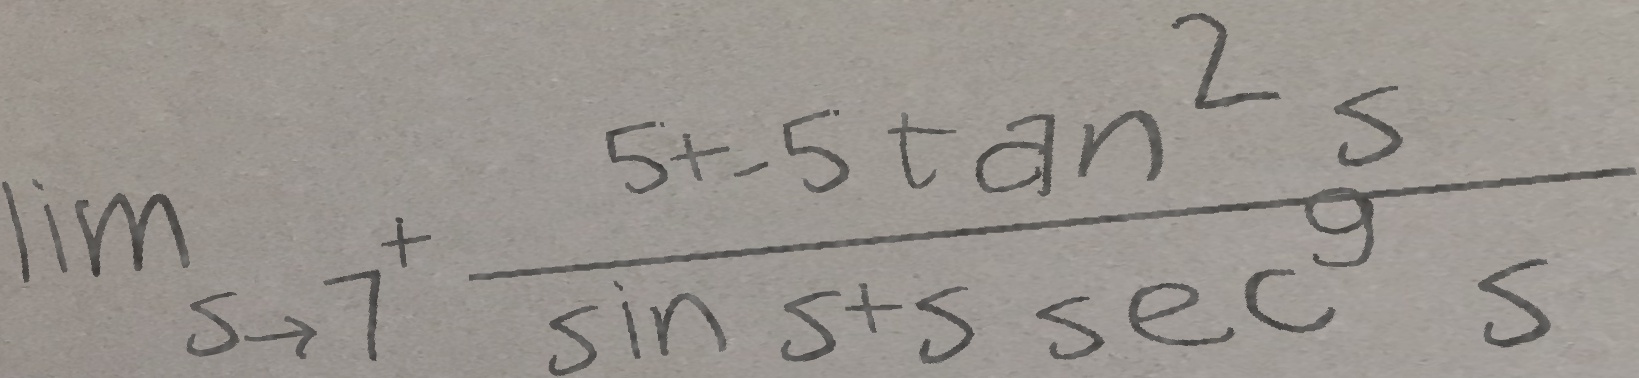 \lim_{s \to 7^+} \frac{5+-5\tan^2 s}{\sin s+s \sec^9 s}